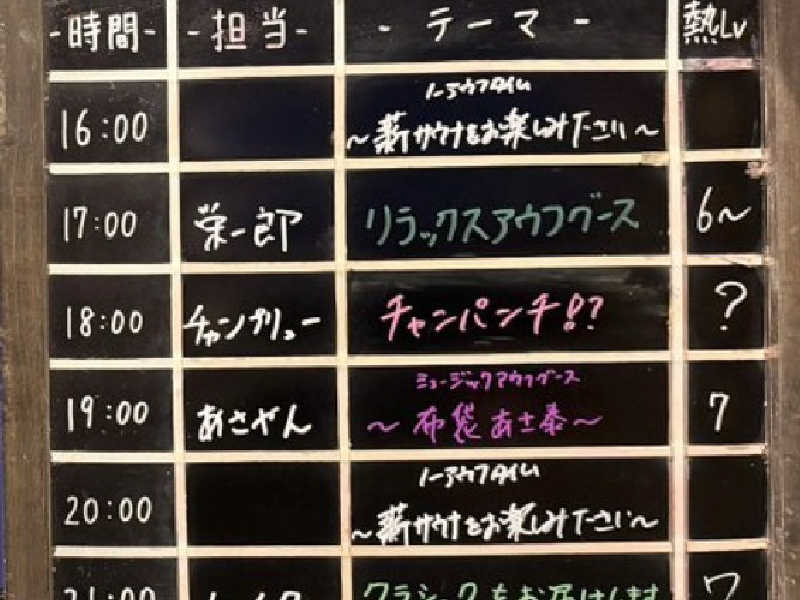 -時間- -担当- - テーマ - 熱Lv
ノーアウフタイム
16:00 ~薪サウナをお楽しみ下さい~
17:00 栄一郎 リラックスアウフグース 6~
18:00 チャンプリュー チャンパンチ!? ?
ミュージックアウフグース
19:00 あさやん ~布袋あさ泰~ 7
ノーアウフタイム
20:00 ~薪サウナをお楽しみ下さい~
21:00 クラシックをお届けします 7